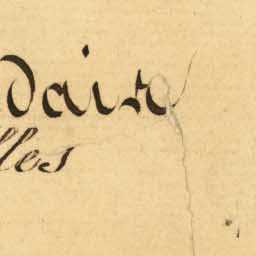 daire
lles